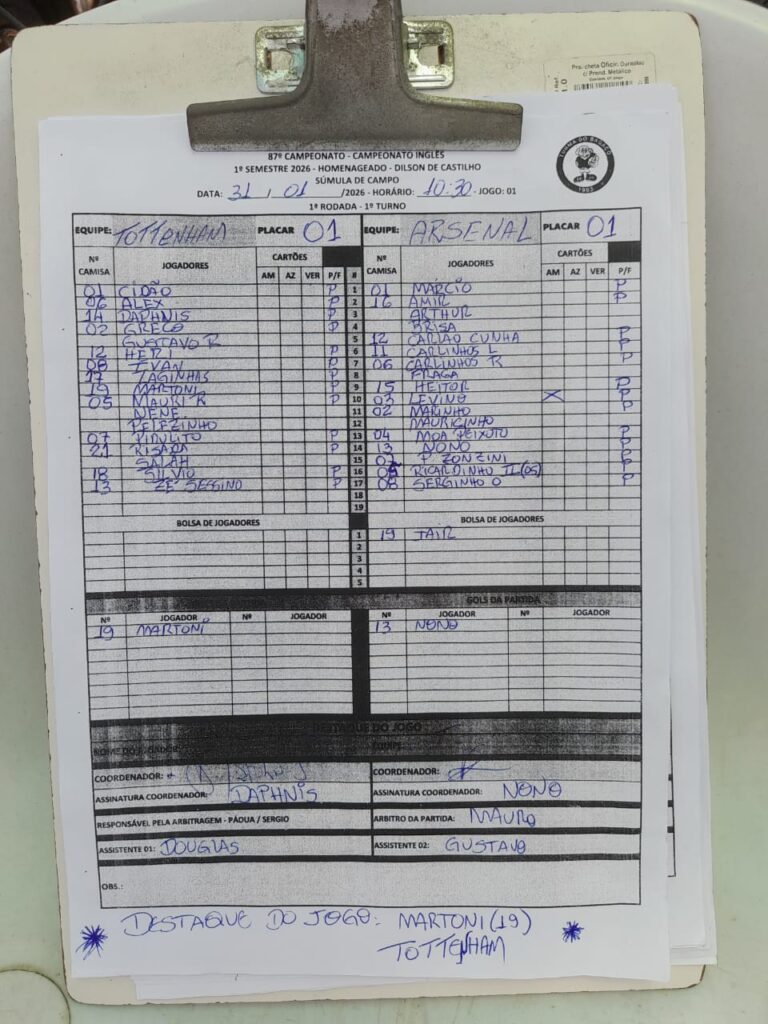 Prancheta Oficio Duraplac
c/ Prend. Metálico
87º CAMPEONATO - CAMPEONATO INGLÊS
1º SEMESTRE 2026 - HOMENAGEADO - DILSON DE CASTILHO
SÚMULA DE CAMPO
DATA: 31 / 01 /2026 - HORÁRIO: 10:30 - JOGO: 01
1ª RODADA - 1º TURNO
TURMA DO BAGAÇO
1983
EQUIPE: TOTTENHAM PLACAR 01 EQUIPE: ARSENAL PLACAR 01
Nº CAMISA JOGADORES CARTÕES Nº CAMISA JOGADORES CARTÕES
AM AZ VER P/F # AM AZ VER P/F
01 CIDÃO P 1 01 MÁRCIO P
06 ALEX P 2 16 AMIR P
14 DAPHNIS P 3 ARTHUR
02 GRECO P 4 BRISA
GUSTAVO R 5 12 CARLÃO CUNHA P
12 HERI P 6 11 CARLINHOS L P
08 IVAN P 7 06 CARLINHOS R P
17 LAGINHAS P 8 FRAGA
19 MARTONI P 9 15 HEITOR P
05 MAURI R P 10 03 LEVINO X P
NENE 11 02 MARINHO P
PELEZINHO 12 MAURICINHO
07 PIRULITO P 13 04 MOA PEIXOTO P
21 RISADA P 14 13 NONO P
SALAH 15 07 P. ZONZINI P
18 SILVIO P 16 09 RICARDINHO IL(05) P
13 ZÉ SESSINO P 17 08 SERGINHO O P
18
19
BOLSA DE JOGADORES BOLSA DE JOGADORES
1 19 JAIR
2
3
4
5
GOLS DA PARTIDA
Nº JOGADOR Nº JOGADOR Nº JOGADOR Nº JOGADOR
19 MARTONI 13 NONO
DESTAQUE DO JOGO
NOME DO JOGADOR: EQUIPE:
COORDENADOR: COORDENADOR:
ASSINATURA COORDENADOR: DAPHNIS ASSINATURA COORDENADOR: NONO
RESPONSÁVEL PELA ARBITRAGEM - PÁDUA / SERGIO ARBITRO DA PARTIDA: MAURO
ASSISTENTE 01: DOUGLAS ASSISTENTE 02: GUSTAVO
OBS.:
DESTAQUE DO JOGO: MARTONI (19)
TOTTENHAM